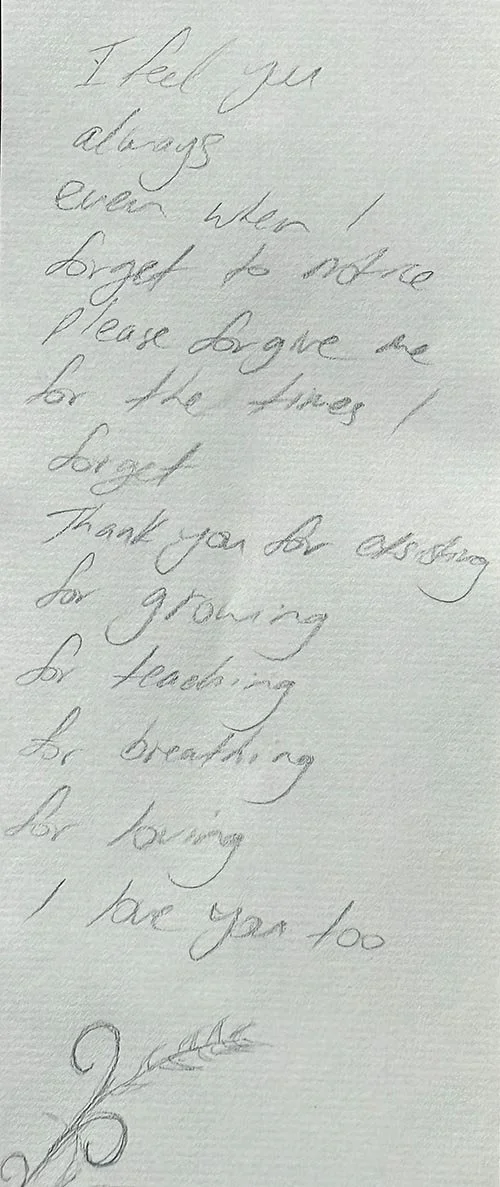 I feel you
always
even when I
forget to notice
please forgive me
for the times I
forget
Thank you for exsisting
for growing
for teaching
for breathing
for loving
I love you too